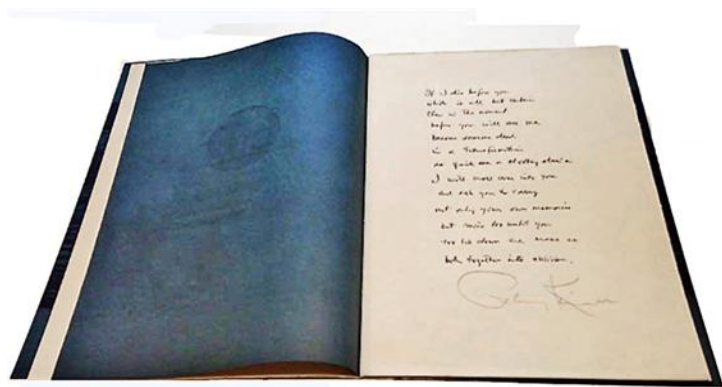 If I die before you
which is all but certain
then in the moment
before you will see me
become someone dead
in a transformation
as quick as a shooting star's
I will cross over into you
and ask you to carry
not only your own memories
but mine too until you
too lie down and erase us
both together into oblivion.